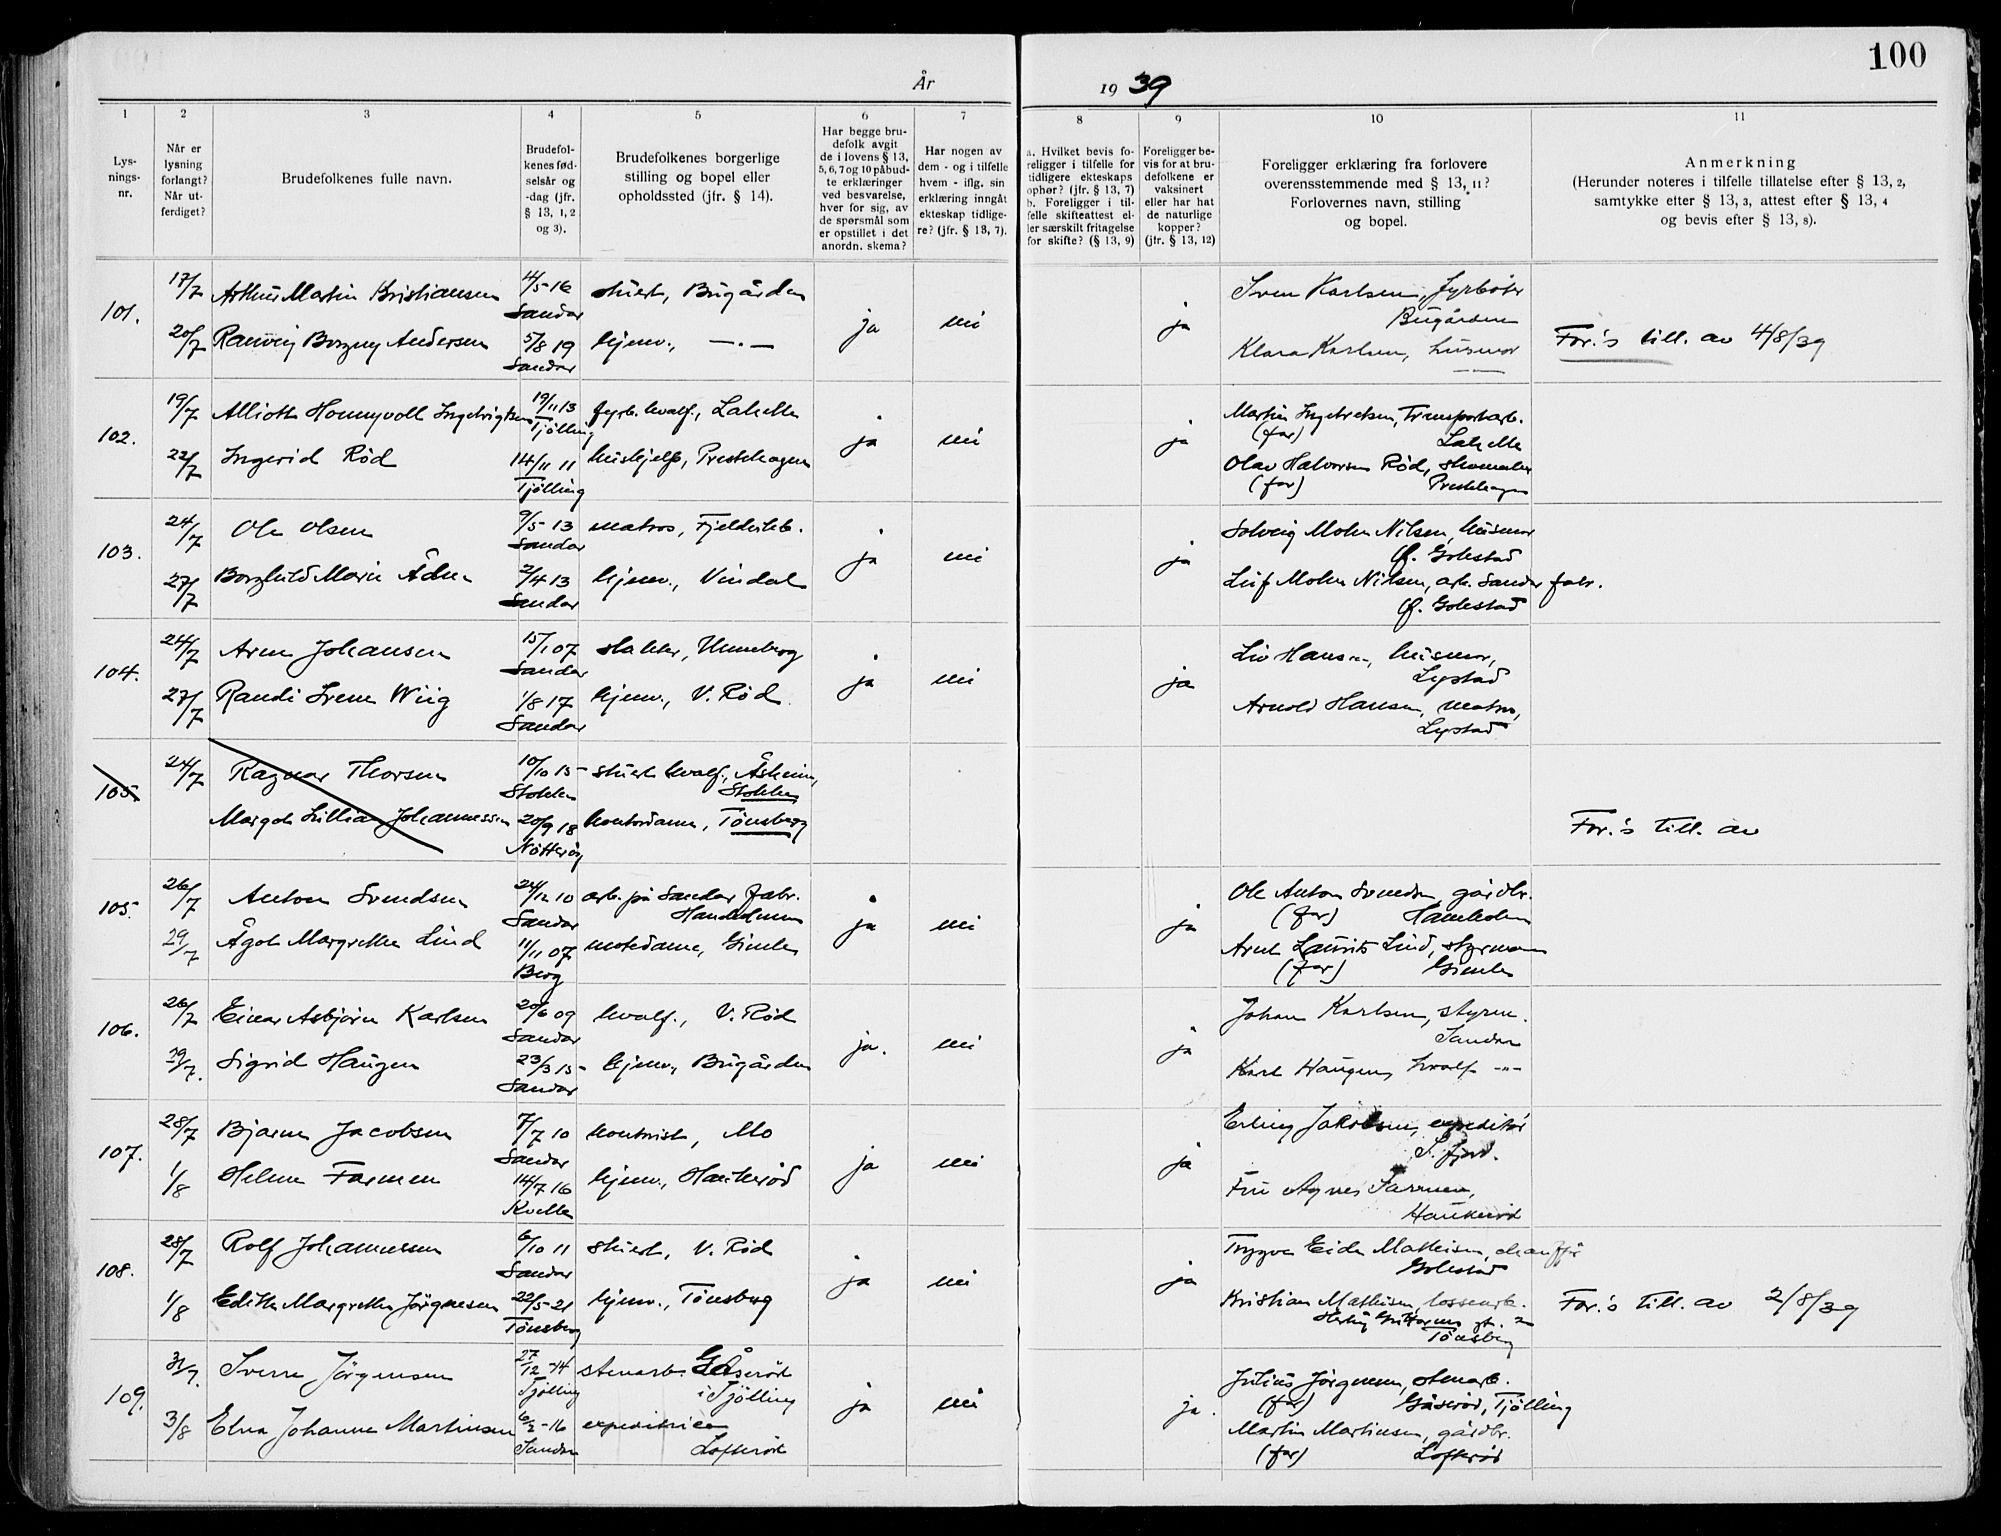 100
År 1939
1 2 3 4 5 6 7 8 9 10 11
Lys-
nings-
nr.
Når er
lysning
forlangt?
Når ut-
ferdiget?
Brudefolkenes fulle navn.
Brudefol-
kenes fød-
selsår og
-dag (jfr.
§ 13, 1, 2
og 3).
Brudefolkenes borgerlige
stilling og bopel eller
opholdssted (jfr. § 14).
Har begge bru-
defolk avgit
de i lovens § 13,
5, 6, 7 og 10 påbud-
te erklæringer
ved besvarelse,
hver for sig, av
de spørsmål som
er opstillet i det
anordn. skema?
Har nogen av
dem - og i tilfelle
hvem - iflg. sin
erklæring inngått
ekteskap tidlige-
re? (jfr. § 13, 7).
a. Hvilket bevis fo-
religger i tilfelle for
tidligere ekteskaps
ophør? (jfr. § 13, 7)
b. Foreligger i til-
felle skifteattest el-
ler særskilt fritagelse
for skifte? (§ 13, 9)
Foreligger be-
vis for at bru-
defolkene er
vaksinert
eller har hat
de naturlige
kopper?
(jfr. § 13, 12)
Foreligger erklæring fra forlovere
overensstemmende med § 13, 11?
Forlovernes navn, stilling
og bopel.
Anmerkning
(Herunder noteres i tilfelle tillatelse efter § 13, 2,
samtykke etter § 13, 3, attest efter § 13, 4
og bevis efter § 13, 8).
101. 17/7 Arthur Martin Kristiansen 4/5-16 Sandar stuert, Bugården ja nei ja Sven Karlsen, fyrbøter
Bugården
20/7 Ranveig Borgny Andersen 5/8 19 Sandar hjemv., —·— Klara Karlsen, husmor
For.'s till. av 4/8/39
102. 19/7 Alliott Hommvoll Ingebrigtsen 19/11 13 Tjølling fyrb. hvalf., Lahelle ja nei ja Martin Ingebretsen, transportarb.
(far) Lahelle
22/7 Ingerid Rød 14/11 11 Tjølling hushjelp, Presthagen Olav Halvorsen Rød, skomaker
(far) Presthagen
103. 24/7 Ole Olsen 9/5-13 Sandar matros, Fjeldvikb. ja nei ja Solveig Mohn Nilsen, husmor
Ø. Gokstad
27/7 Borghild Marie Ådne 2/4 13 Sandar hjemv., Vindal Leif Mohn Nilsen, arb. Sandar fabr.
Ø. Gokstad
104. 24/7 Arne Johansen 15/1 07 Sandar stakker, Unneberg ja nei ja Liv Hansen, husmor,
Lystad
27/7 Randi Irene Wiig 1/8 17 Sandar hjemv., V. Rød Arnold Hansen, matros,
Lystad
105 24/7 Ragnar Thorsen 10/10 15 Stokke stuert hvalf., Åsheim,
Stokke
Margot Lillian Johannessen 20/9 18 Nøtterøy kontordame, Tønsberg
For.'s till. av
105. 26/7 Anton Svendsen 24/12 10 Sandar arb. på Sandar fabr. ja nei ja Ole Anton Svendsen, gårdbr.
(far)
29/7 Ågot Margrethe Lind 11/11 07 Berg motedame, Gimle Arnt Laurits Lind, styrmann
(far) Gimle
106. 26/7 Einar Asbjørn Karlsen 20/6 09 Sandar hvalf., V. Rød ja. nei ja Johan Karlsen, styrm.
Sandar
29/7. Sigrid Haugen 23/3 15 Sandar hjemv., Bugården Karl Haugen, hvalf -"-
107. 28/7 Bjarne Jacobsen 7/7 10 Sandar kontorist, Mo ja nei ja Erling Jakobsen, expeditør
S.fjord.
1/8 Helene Farmen 14/7 16 Kvelle hjemv., Haukerød Fru Agnes Farmen,
Haukerød
108. 28/7 Rolf Johannessen 6/10 11 Sandar stuert, V. Rød ja nei ja Trygve Eide Mathisen, chauffør
Gokstad
1/8 Edith Margrethe Jørgensen 22/5-21 Tønsberg hjemv., Tønsberg Kristian Mathisen, lossearb.
Tønsberg
For.'s till. av 2/8/39
109. 31/7. Sverre Jørgensen 27/12 -14 Tjølling stenarb. Gåserød
i Tjølling ja nei ja. Julius Jørgensen, stenarb.
(far) Gåserød, Tjølling
3/8 Elna Johanne Martinsen 6/2 -16 Sandar expeditrice
Lofterød Martin Martinsen, gårdbr.
(far) Lofterød